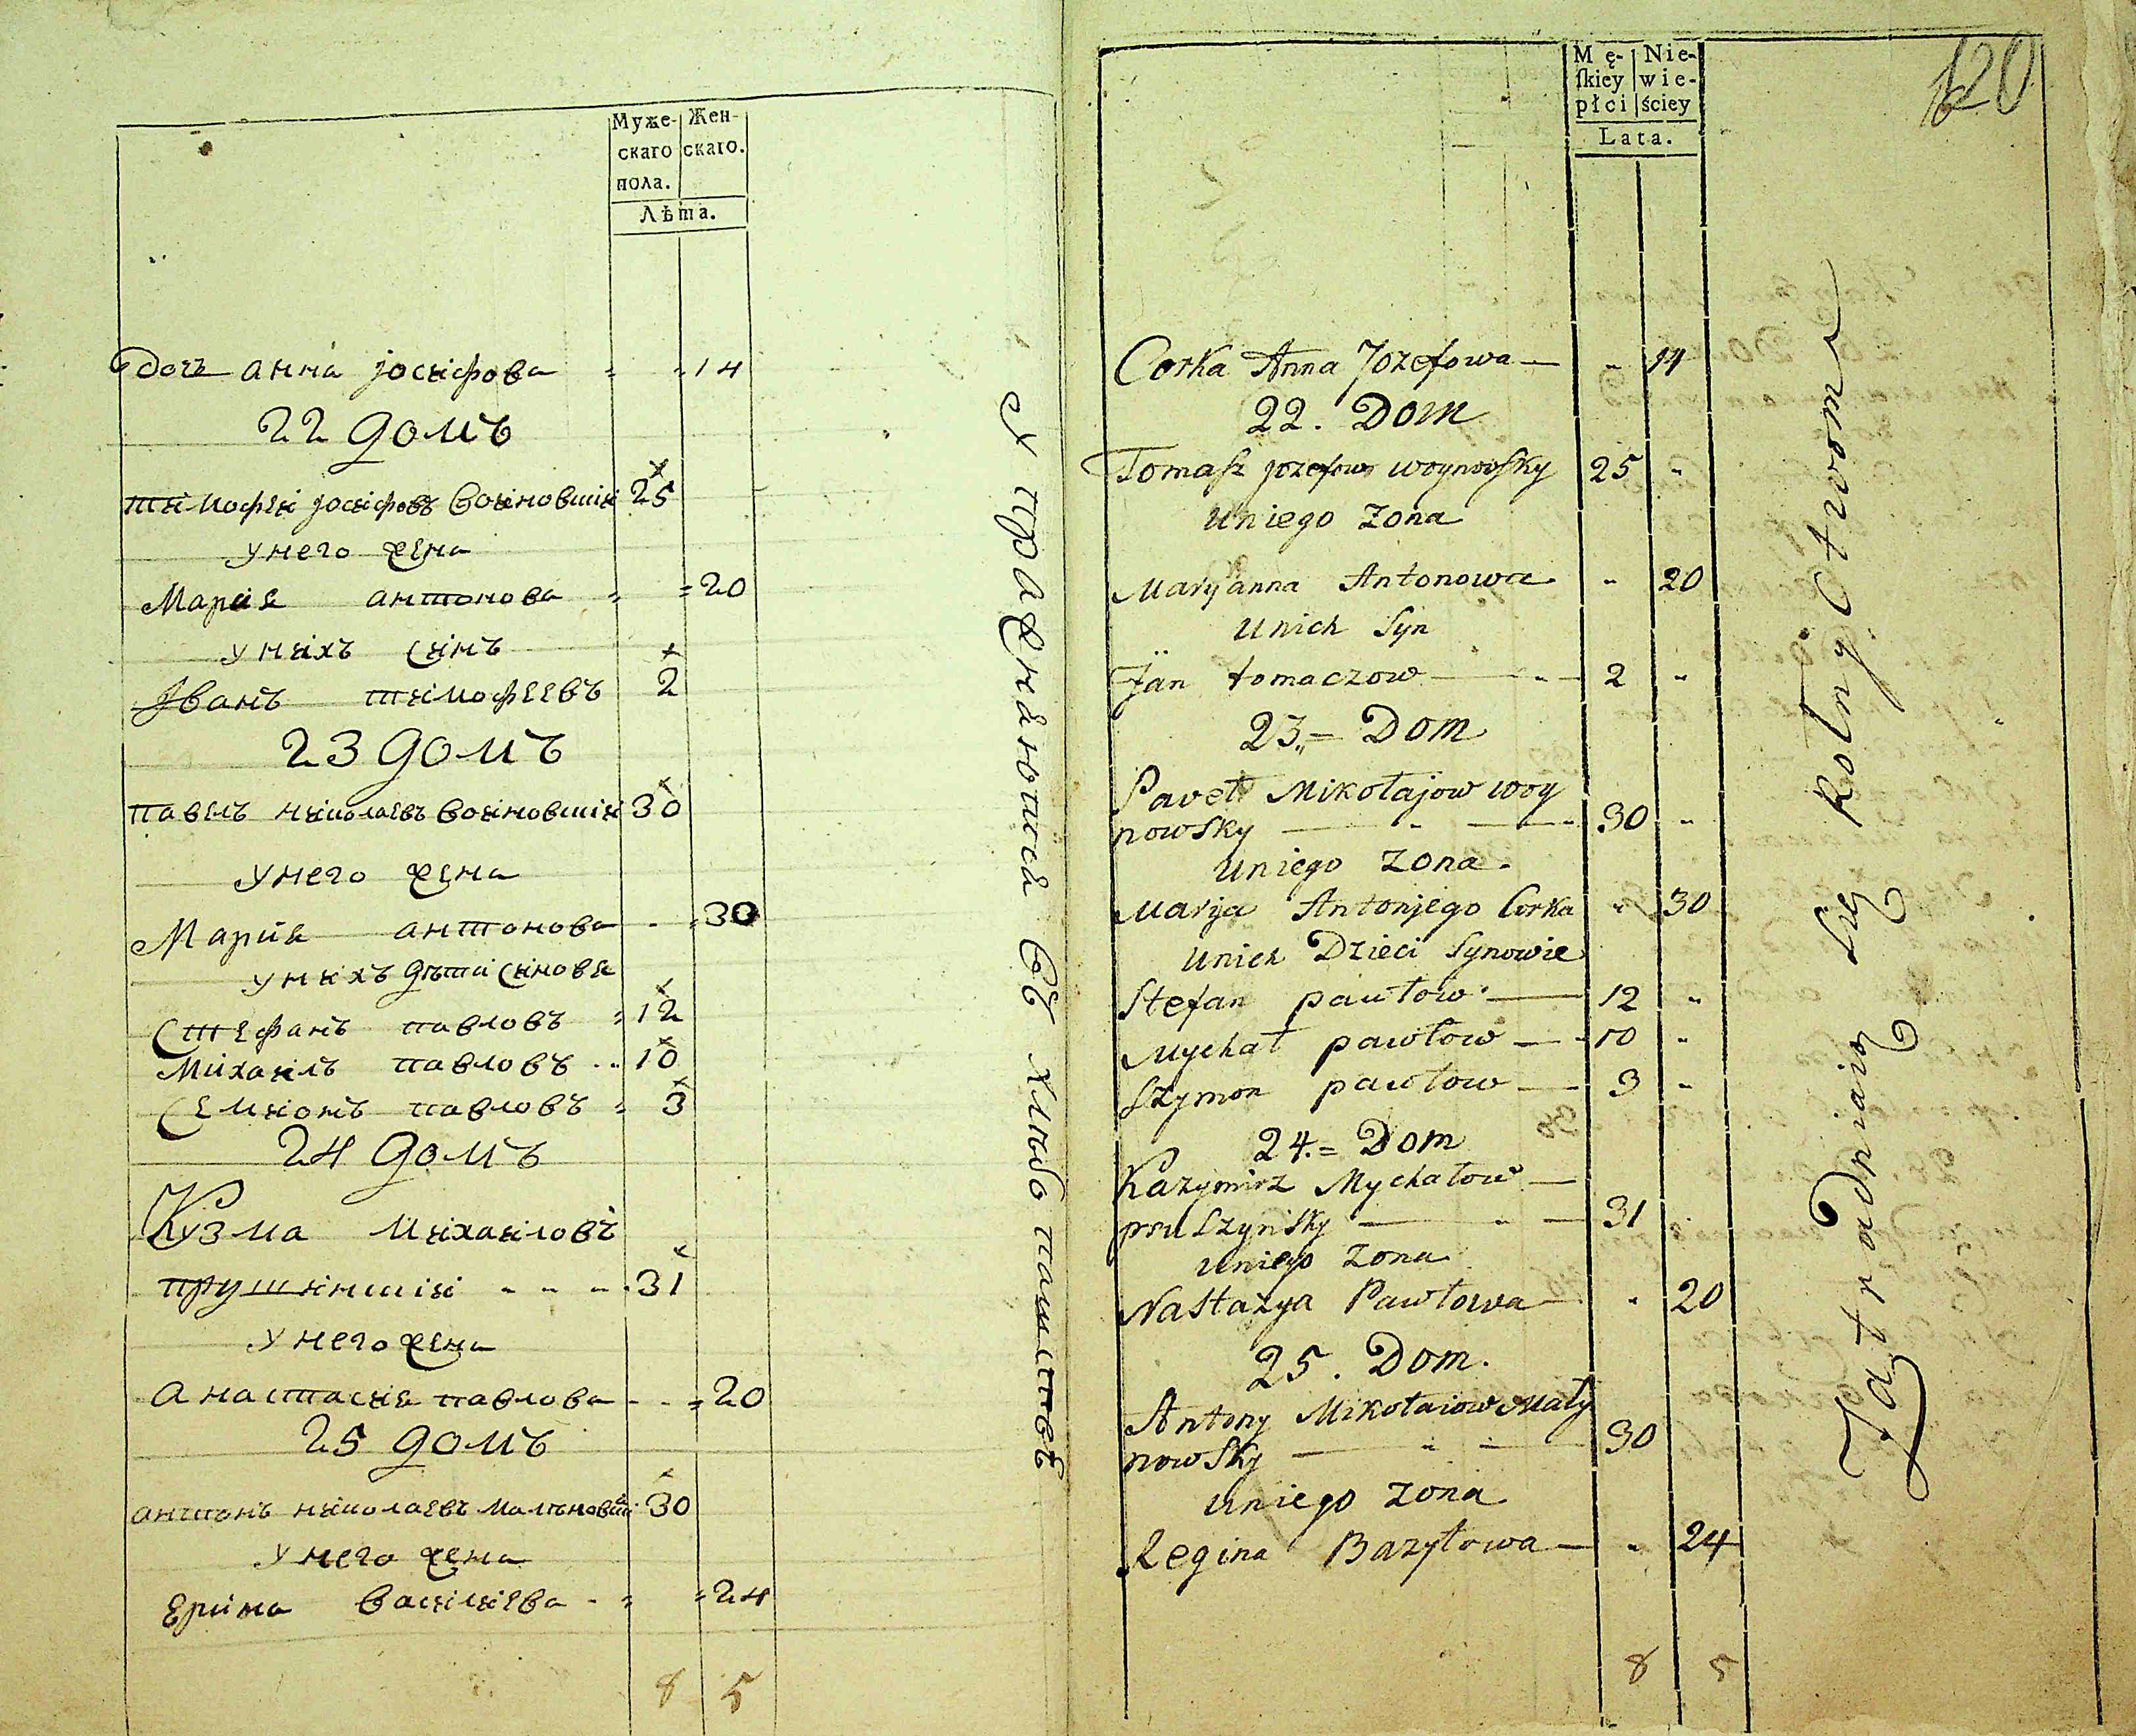 Муже-
скаго
пола.
Жен-
скаго.
Лѣта.
Дочъ анна јосифова 14
22 домъ
тимофей јосифовъ воиновский 25
у него жена
Мария антонова 20
у нихъ синъ
Јванъ тимофеевъ 2
23 домъ
павелъ николаевъ воиновский 30
у него жена
Мария антонова 30
у нихъ дѣти синовя
Стефанъ павловъ 12
Михаилъ павловъ 10
Семионъ павловъ 3
24 домъ
Кузма михаиловъ
прушинский 31
у него жена
анастасия павлова 20
25 домъ
антонъ николаевъ малѣновский 30
у него жена
Ерина василиева 24
8 5
упражняются въ хлѣбопашствѣ
120
Mę-
skiey
płci
Nie-
wie-
ściey
Lata.
Corka Anna Jozefowa 14
22. Dom
Tomasz jozefow woynowsky 25
Uniego Zona
Maryanna Antonowa 20
Unich Syn
Jan tomaczow 2
23. Dom
Paveł Mikołajow woy
nowsky 30
Uniego Zona
Marija Antonjego Corka 30
Unich Dzieci Synowie
Stefan pawłow 12
Mychał pawłow 10
Szymon pawłow 3
24. Dom
Kazymirz Mychałow
pruszynsky 31
Uniego Zona
Nastazya Pawłowa 20
25. Dom.
Antony Mikołaiow Mały
nowsky 30
Uniego Zona
Regina Bazyłowa 24
8 5
Zatrudniaią się Rolnyctwom